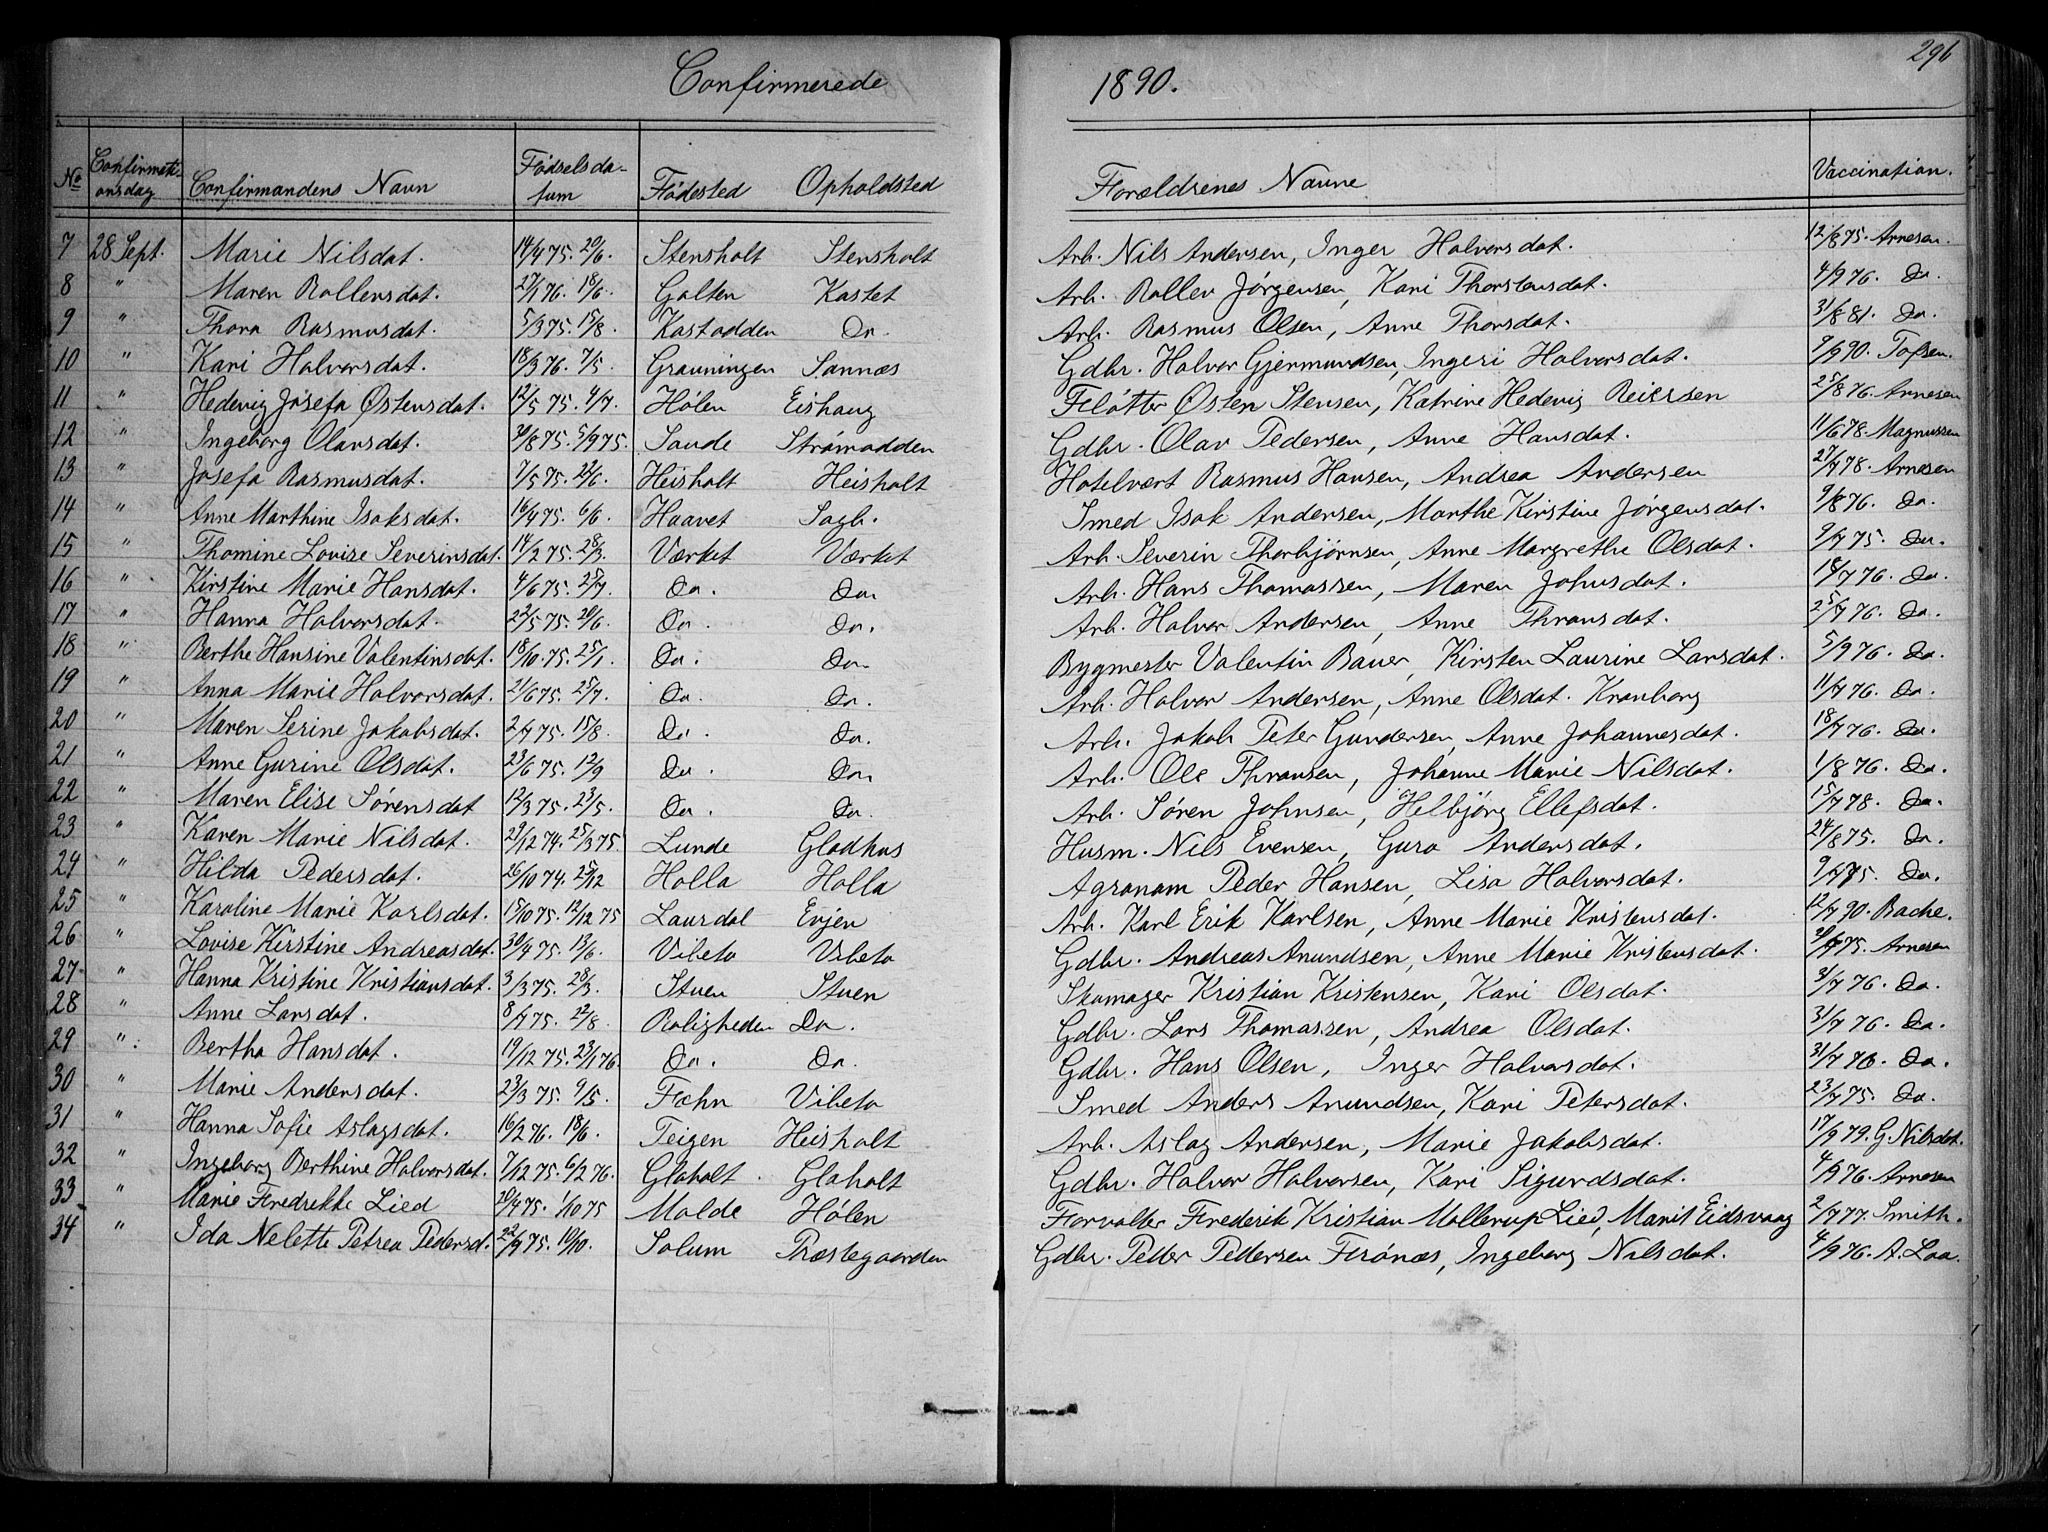 296
Confirmerede 1890.
No Confirmationsdag Confirmandens Navn Fødselsdatum Fødested Opholdsted Forældrenes Navne Vaccination.
7 28 Sept. Marie Nilsdat. 14/4 75. 20/6. Stensholt Stensholt Arb. Nils Andersen, Inger Halvorsdat. 12/8 75. Arnesen.
8 " Maren Rollevsdat. 27/1 76. 18/6. Galten Kastet Arb. Rollev Jørgensen, Kari Thorstensdat. 4/9 76. Do.
9 " Thora Rasmusdat. 5/3 75. 15/8. Kastodden Do Arb. Rasmus Olsen, Anne Thorsdat. 31/8 81. Do.
10 " Kari Halvorsdat. 18/3 76. 7/5. Grauningen Sannæs Gdbr. Halvor Gjermundsen, Ingeri Halvorsdat. 9/9 90. Tofsen.
11 " Hedevig Josefa Østensdat. 12/5 75. 4/7. Hølen Eishaug Fløtter Østen Stensen, Katrine Hedevig Reiersen 25/8 76. Arnesen
12 " Ingeborg Olavsdat. 30/8 75. 5/9 75. Saude Strømodden Gdbr. Olav Pedersen, Anne Hansdat. 11/6 78. Magnussen
13 " Josefa Rasmusdat. 7/5 75. 22/6. Heisholt Heisholt Hotelvært Rasmus Hansen, Andrea Andersen 27/7 78. Arnesen
14 " Anne Marthine Isaksdat. 16/4 75. 6/6. Haavet Sagb. Smed Isak Andersen, Marthe Kirstine Jørgensdat. 9/8 76. Do.
15 " Thomine Lovise Severinsdat. 14/2 75. 28/3. Værket Værket Arb. Severin Thorbjørnsen, Anne Margrethe Olsdat. 9/7 75. Do.
16 " Kirstine Marie Hansdat. 4/6 75. 25/7. Do. Do. Arb. Hans Thomassen, Maren Johnsdat. 18/7 76. Do.
17 " Hanna Halvorsdat. 22/5 75. 20/6. Do. Do. Arb. Halvor Andersen, Anne Thronsdat. 25/7 76. Do.
18 " Berthe Hansine Valentinsdat. 18/10. 75. 25/1. Do. Do. Bygmester Valentin Bauer, Kirsten Laurine Larsdat. 5/9 76. Do.
19 " Anna Marie Halvorsdat. 21/6 75. 25/7. Do. Do. Arb. Halvor Andersen, Anne Olsdat. Kronborg 11/7 76. Do.
20 " Maren Serine Jakobsdat. 2/7 75. 15/8. Do. Do. Arb. Jakob Peter Gundersen, Anne Johannesdat. 18/7 76. Do.
21 " Anne Gurine Olsdat. 23/6 75. 12/9 Do. Do. Arb. Ole Thronsen, Johanne Marie Nilsdat. 1/8 76. Do.
22 " Maren Elise Sørensdat 12/3 75. 23/5. Do. Do. Arb. Søren Johnsen, Helbjørg Ellefsdat. 15/7 78. Do.
23 " Karen Marie Nilsdat. 29/12 74. 25/3 75. Lunde Gladhus Husm. Nils Evensen, Guro Andersdat. 24/8 75. Do.
24 " Hilda Pedersdat. 26/10 74. 25/12 Holla Holla Agronom Peder Hansen, Lisa Halvorsdat. 9/7 75. Do.
25 " Karoline Marie Karlsdat. 15/10 75. 12/12 75 Laurdal Evjen Arb. Karl Erik Karlsen, Anne Marie Kristensdat. 12/7 90. Bache.
26 " Lovise Kirstine Andreasdat. 30/4 75. 13/6. Vibeto Vibeto Gdbr. Andreas Anundsen, Anne Marie Kristensdat. 20/7 75. Arnesen
27 " Hanna Kristine Kristiansdat. 3/3 75. 28/3. Stuen Stuen Skomager Kristian Kristensen, Kari Olsdat. 31/7 76. Do.
28 " Anne Larsdat. 8/7 75. 22/8. Roligheden Do. Gdbr. Lars Thomassen, Andrea Olsdat. 31/7 76. Do.
29 " Bertha Hansdat. 19/12 75. 23/1 76. Do. Do. Gdbr. Hans Olsen, Inger Halvorsdat. 31/7 76. Do.
30 " Marie Andersdat. 23/3 75. 9/5. Fæhn Vibeto Smed Anders Anundsen, Kari Petersdat. 23/7 75. Do.
31 " Hanna Sofie Aslagsdat. 16/2 76. 18/6. Teigen Heisholt Arb. Aslag Andersen, Marie Jakobsdat. 17/9 79. G. Nilsdat.
32 " Ingeborg Berthine Halvorsdat. 7/12 75. 6/2 76. Glaholt Glaholt Gdbr. Halvor Halvorsen, Kari Sigurdsdat. 4/9 76. Arnesen
33 " Marie Fredrikke Lied 20/4 75. 1/10 75 Molde Hølen Forvalter Frederik Kristian Møllerup Lied, Marit Eidsvaag 2/7 77. Smith.
34 " Ida Nelette Petrea Pedersd. 22/9 75. 10/10. Solum Præstegaarden Gdbr. Peder Pedersen Frønæs, Ingeborg Nilsdat. 4/9 76. A. Laa.